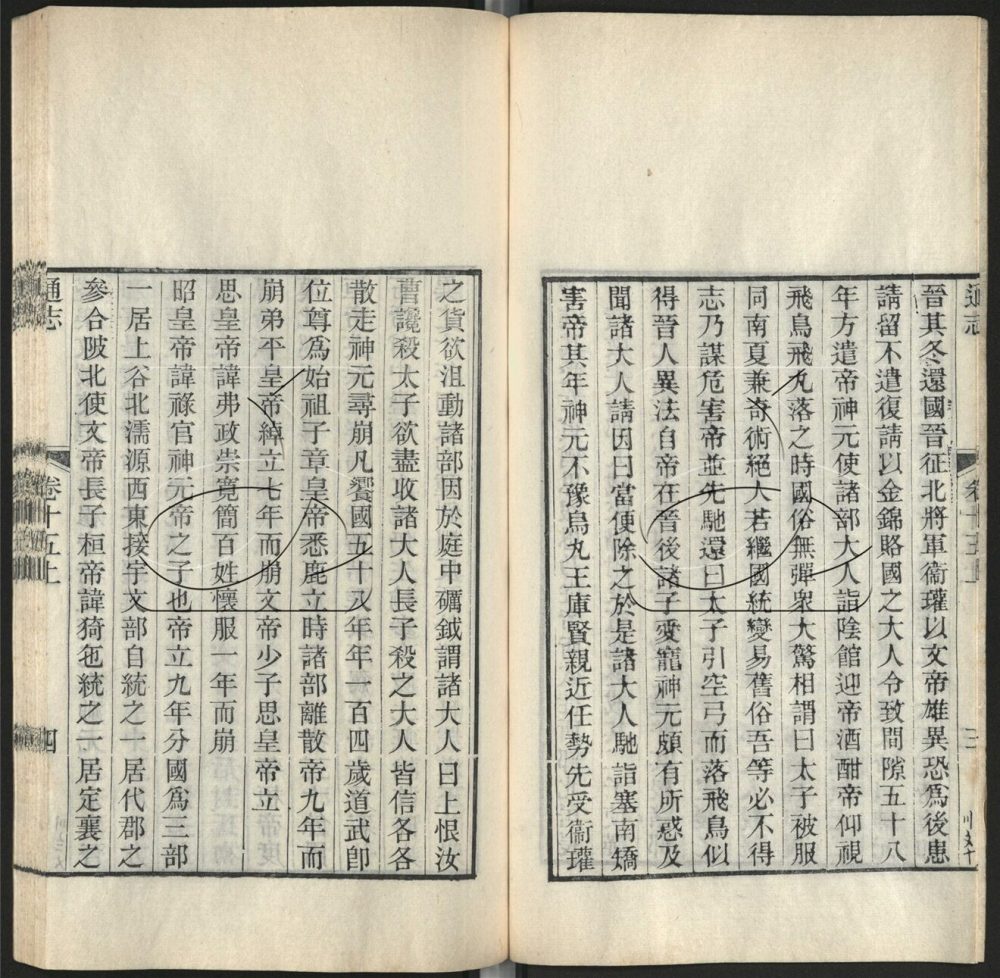 晉其冬還國晉征北將軍衞瓘以文帝雄異恐爲後患
請留不遣復請以金錦賂國之大人令致間隙五十八
年方遣帝神元使諸部大人詣陰館迎帝酒酣帝仰視
飛鳥飛丸落之時國俗無彈衆大驚相謂曰太子被服
同南夏兼奇術絕人若繼國統變易舊俗吾等必不得
志乃謀危害帝並先馳還曰太子引空弓而落飛鳥似
得晉人異法自帝在晉後諸子愛寵神元頗有所惑及
聞諸大人請因曰當便除之於是諸大人馳詣塞南矯
害帝其年神元不豫烏丸王庫賢親近任勢先受衞瓘
通志
三
之貨欲沮動諸部因於庭中礪鉞謂諸大人曰上恨汝
曹讒殺太子欲盡收諸大人長子殺之大人皆信各各
散走神元尋崩凡饗國五十八年年一百四歲道武卽
位尊爲始祖子章皇帝悉鹿立時諸部離散帝九年而
崩弟平皇帝綽立七年而崩文帝少子思皇帝立
思皇帝諱弗政崇寬簡百姓懷服一年而崩
昭皇帝諱祿官神元帝之子也帝立九年分國爲三部
一居上谷北濡源西東接宇文部自統之一居代郡之
參合陂北使文帝長子桓帝諱猗㐌統之一居定襄之
通志
卷十五上
四